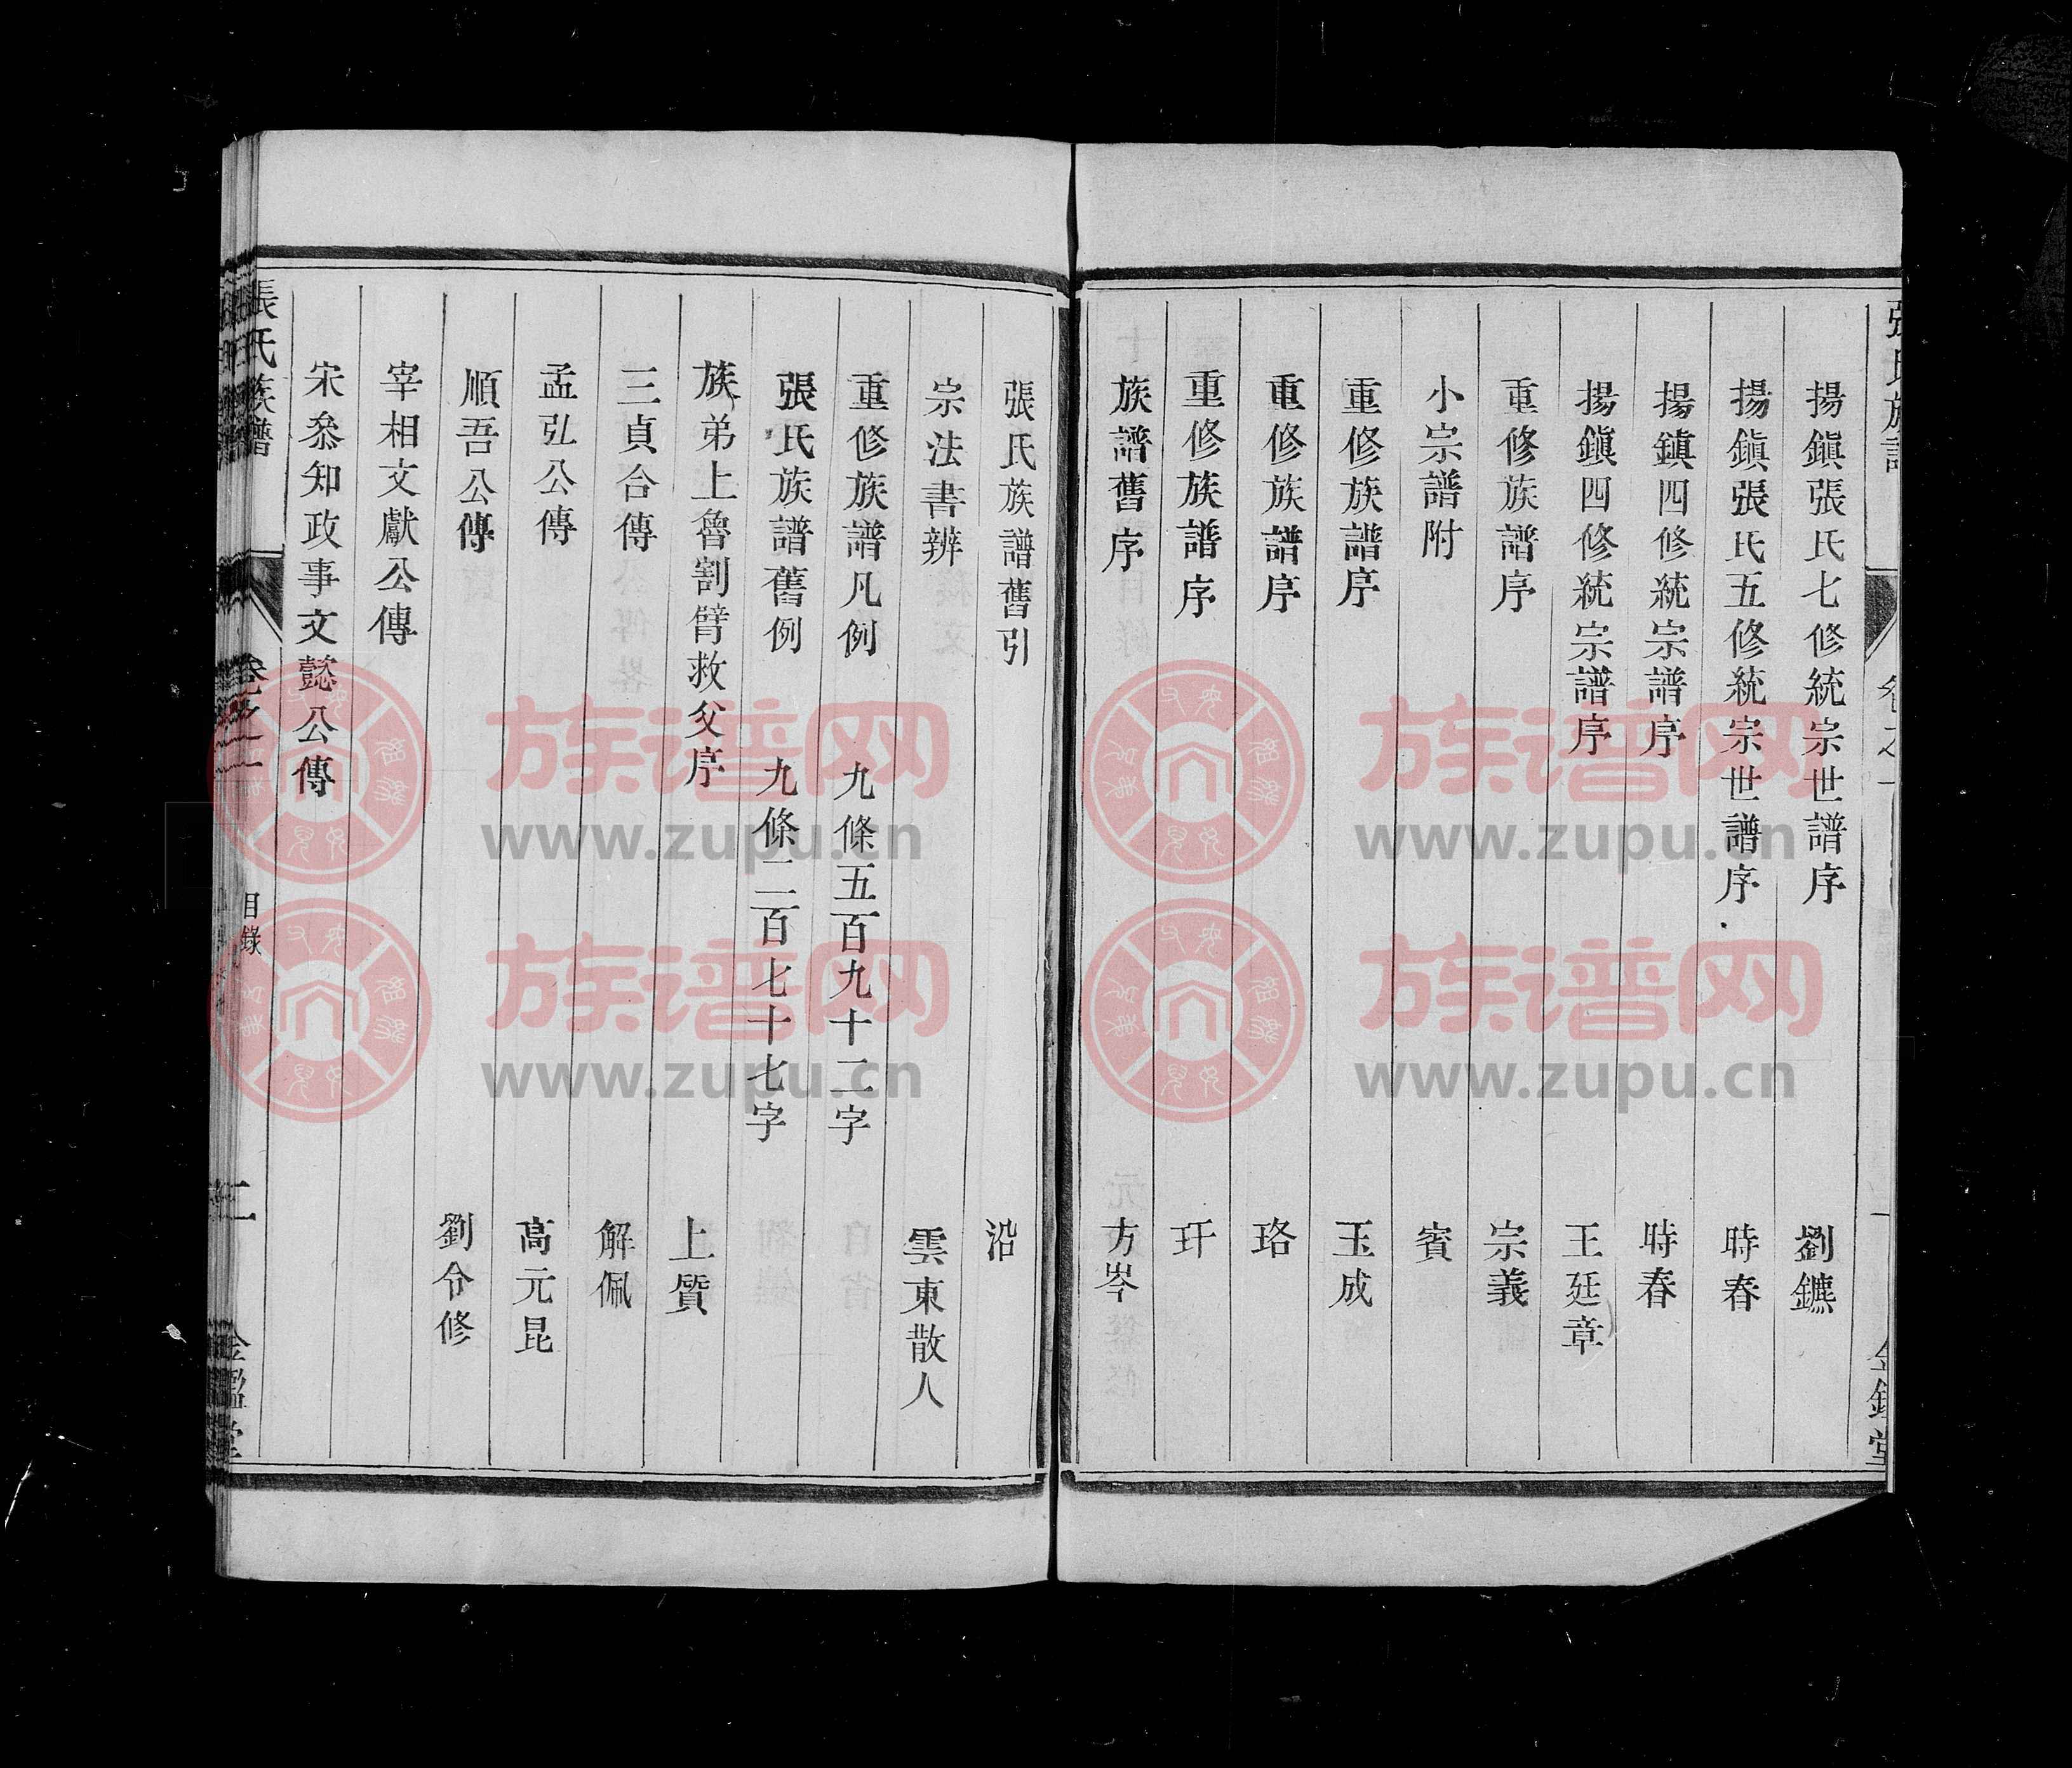 張氏族譜
卷之一
金鑑堂
揚鎭張氏七修統宗世譜序 劉鑣
揚鎭張氏五修統宗世譜序 時春
揚鎭四修統宗譜序 時春
揚鎭四修統宗譜序 王廷章
重修族譜序 宗義
小宗譜附 賓
重修族譜序 玉成
重修族譜序 珞
重修族譜序 玕
族譜舊序 方岑
張氏族譜舊引 沿
宗法書辨 雲東散人
重修族譜凡例 九條五百九十二字
張氏族譜舊例 九條二百七十七字
族弟上魯割臂救父序 上質
三貞合傳 解佩
孟弘公傳 高元昆
順吾公傳 劉令修
宰相文獻公傳
宋叅知政事文懿公傳
張氏族譜
卷之一
目錄
二
金鑑堂
族谱网
www.zupu.cn
族谱网
www.zupu.cn
族谱网
www.zupu.cn
族谱网
www.zupu.cn